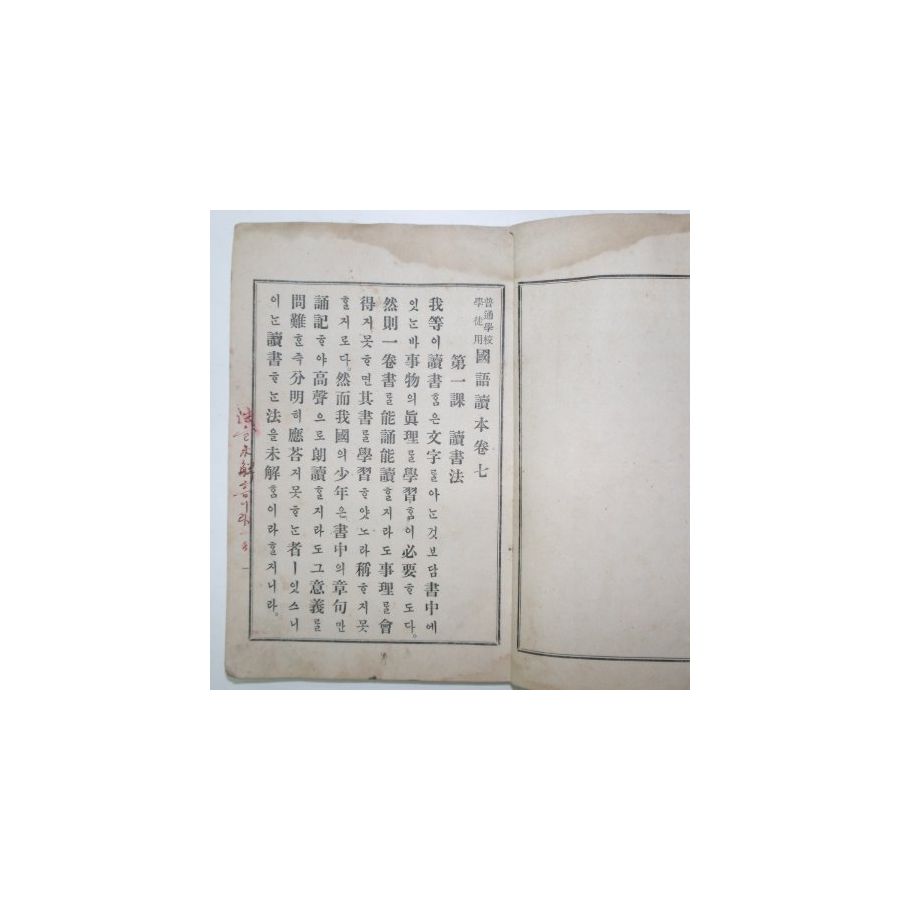 普通學校
學徒用 國語讀本卷七
第一課 讀書法
我等이讀書홈은文字를아ᄂᆞᆫ것보담書中에
잇ᄂᆞᆫ바事物의眞理를學習홈이必要ᄒᆞ도다。
然則一卷書를能誦能讀ᄒᆞᆯ지라도事理를會
得지못ᄒᆞ면其書를學習ᄒᆞ얏노라稱ᄒᆞ지못
ᄒᆞᆯ지로다。然而我國의少年은書中의章句만
誦記ᄒᆞ야高聲으로朗讀ᄒᆞᆯ지라도그意義를
問難ᄒᆞᆫ즉分明히應荅지못ᄒᆞᄂᆞᆫ者ㅣ잇스니
이ᄂᆞᆫ讀書ᄒᆞᄂᆞᆫ法을未解홈이라ᄒᆞᆯ지니라。